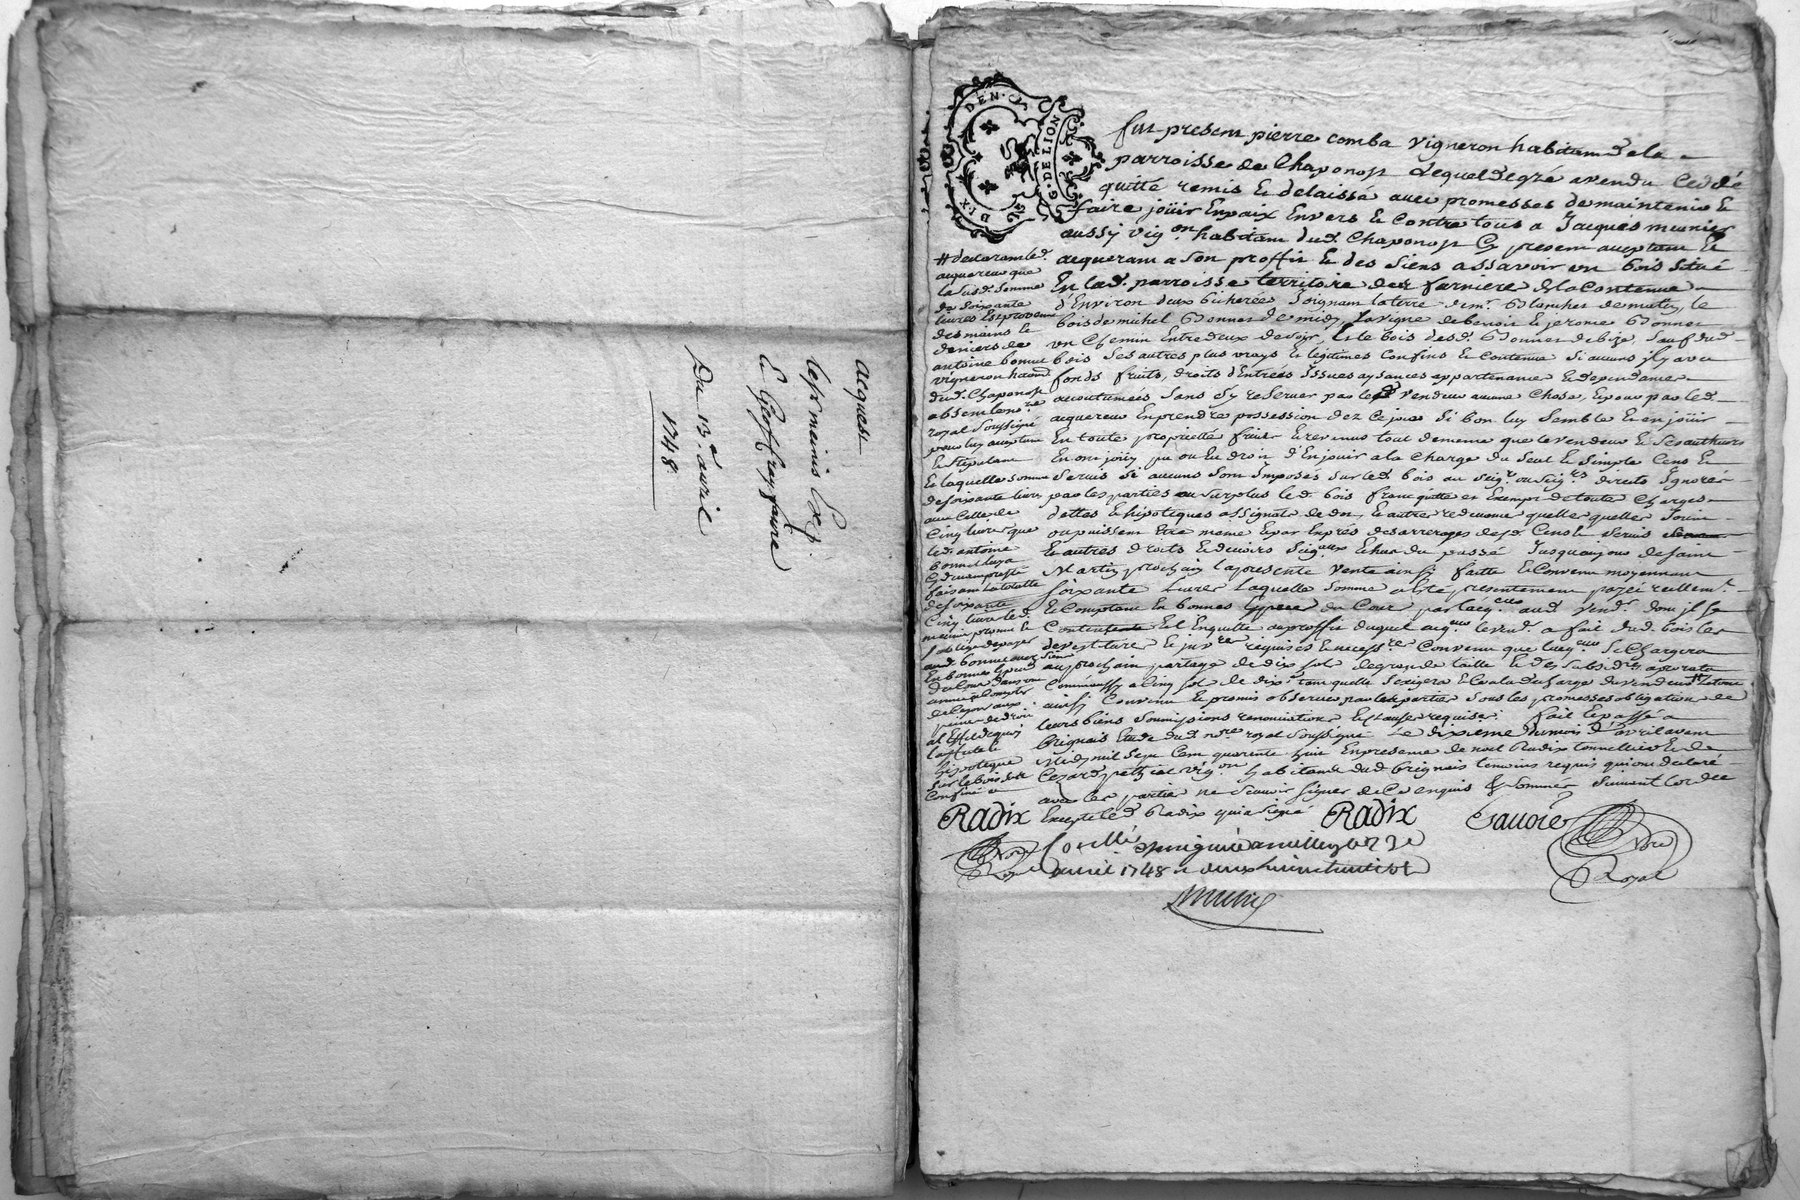 acquest
Les meinis Exp.
E Geoffray faure
Du 13e avril
1748
DIX DEN.
G. DE LION
fut present pierre comba vigneron habitant de la
parroisse de Chaponost Lequel de gré a vendu Ceddé
quitté remis & delaissé avec promesses de maintenir &
faire joüir En paix Envers & Contre tous a Jacques meunier
aussy vigon habitant dud. Chaponost Cy present acceptant &
acquerant a Son proffit & des Siens assavoir un bois Situé
En lad. parroisse territoire des farniere de la Contenue
d'Environ deux bicherée Joignant la terre de mr. Blanchet de matin, le
bois de michel Bonnet de midy, La vigne de benoit & jerome Bonnet
un Chemin Entre deux de Soir, & le bois desd. Bonnet de bize, Sauf dud.
bois Ses autres plus vrays & legitimes Confins & Contenue Si aucuns il y a avec
fonds fruits, droits d'Entrées Issues aysances appartenances & dependances
accoutumées Sans S'y reserver par led. vendeur aucune Chose, Et pour par led.
acquereur En prendre possession dez Ce jour Si bon luy Semble & en joüir
En toute proprietté fruits & revenus tout de meme que le vendeur & Ses autheurs
En ont joüy pu ou du droit d'En jouir a la Charge du Seul & Simple Cens &
Servis Si aucuns Sont Imposés Sur led. bois au Seigr. ou Seigrs directs Ignorés
par les parties au Surplus led. bois franc quitte et Exempt de toute Charges
dettes & hipoteques assignats de dot, & autres redevance quelles quelles Soient
ou puissent Etre meme Et par Exprés des arrerages desd. Cens & Servis
& autres droits & devoirs Seigaux Echus du passé Jusquau jour de Saint
Martin prochain la presente vente ainsi faitte & Convenu moyennant
Soixante Livres Laquelle Somme a Eté presentement payée reellemt.
& Comptant En bonnes Especes du Cour par lacqeur aud. vendr. dont jl Se
Contente & l'En quitte au proffit duquel acqeur le vendr. a fait dud. bois les
devestiture & invre requises & necessre Convenu que lacqeur Se Chargera
au prochain partage de dix Sol de grande taille & des Subsides
Communs a Cinq Sol de dixe tant quelle Sexigera & Cela a la decharge du vendeur
ainsi Convenu & promis observer par les parties Sous les promesses obligation de
leurs biens Soumissions renonciation & clauses requises. fait & passé a
brignais Etude dud. nore royal Soussigné Le dixieme du mois d'avril avant
Midy mil Sept Cent quarante huit En presence de noel Radix tonnellier & de
Cezard pathial vigon habitants dud brignais temoins requis qui ont declaré
avec les parties ne Scavoir Signer de Ce enquis & Sommés Suivant lordce
Excepté led Radix qui a Signé
# declarant led.
acquereur que
la Susd. Somme
de Soixante
livres Est provenue
des mains &
deniers de
antoine bonnet
vigneron habitant
dud. Chaponost
absent le nre
royal Soussigné
pour luy acceptant
& Stipulant
& laquelle Somme
de Soixante livres
avec Celle de
Cinq livres que
led. antoine
bonnet luy a
faisant la totalle
de Soixante
Cinq livres led.
meunier promet &
Soblige de payer
aud bonnet
En bonnes Especes
du Cour
de Ce jour
peine de droit
a l'Effet de quoy
hipoteque
Sur le bois
Confiné
RADIX RADIX Savoie
Nore
Royal
Controllé
avril 1748